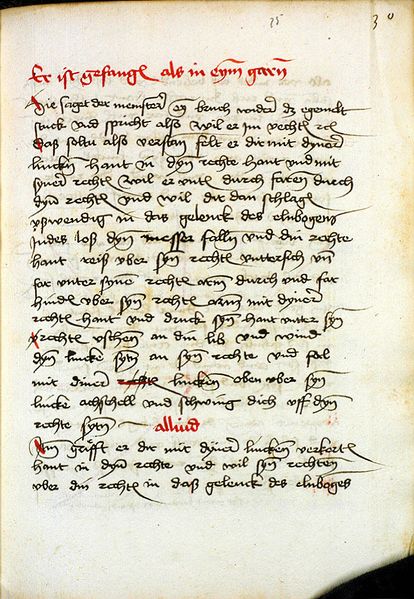 25
30
Er ist gefangen als in eynem garn
Hie saget der meinster ein bruch wider dz egemelt
stuck vnd spricht also wil er im rechten
Daß soltu also verstan felt er dir mit dyner
lincken hant in dyn rechte hant vnd mit
syner rechten wil er unten durch faren durch
dyn rechten vnd wil dir dan schlagen
vßwendig in das gelenck des elnbogens
Indes loß dyn messer fallen vnd din rechte
hant reiß vber syn rechten vntersich vnd
far vnter synen rechten arm durch vnd far
hinden vber syn rechten arm mit dyner
rechten hant vnd druck syn hant vnter syn
vrechten vschen an din lib vnd wind
dyn lincke syten an syn rechte vnd fal
mit diner lincken oben vber syn
lincke achschell vnd schwing dich vff dyn
rechte syten alliud
Item grifft er dir mit dyner lincken verkorten
hant in dyn rechte vnd wil syn rechten
vber din rechten in daß gelenck des elnboges